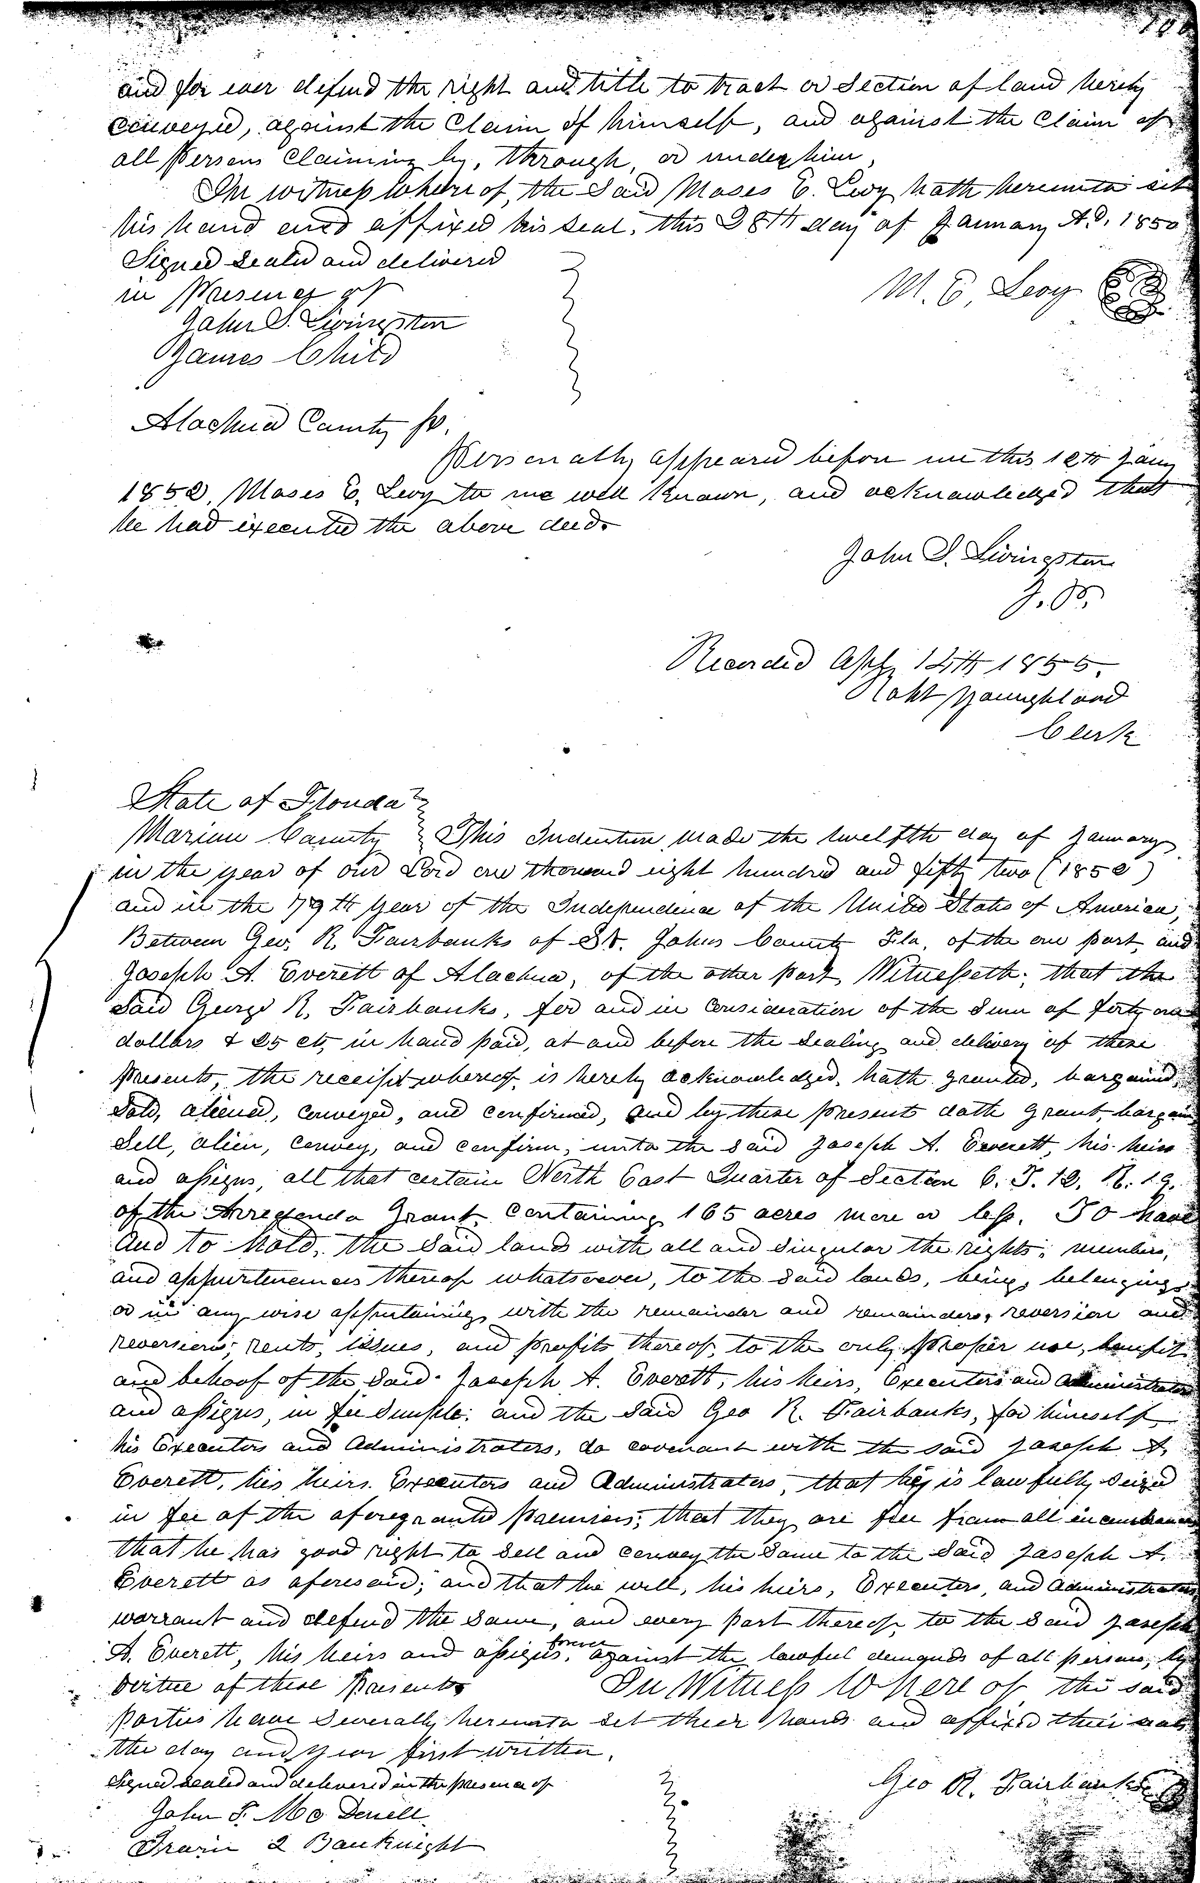 and for ever defend the right and title to tract or Section of land hereby
conveyed, against the Claim of himself, and against the Claim of
all persons claiming by, through, or under him,
In witness whereof, the said Moses E. Levy hath hereunto set
his hand and affixed his seal, this 28th day of January A.D. 1850
Signed sealed and delivered
in presence of
M. E. Levy
John S. Livingston
James Child
Alachua County ss.
Personally appeared before me this 12th Jany
1852, Moses E. Levy to me well known, and acknowledged that
he had executed the above deed.
John S. Livingston
J. P.
Recorded Apl 14th 1855.
Robt Youngblood
Clerk
State of Florida
Marion County This Indenture made the twelfth day of January
in the year of our Lord one thousand eight hundred and fifty two (1852)
and in the 79th year of the Independence of the United States of America,
Between Geo. R. Fairbanks of St. Johns County Fla, of the one part, and
Joseph A. Everett of Alachua, of the other part, Witnesseth; that the
said George R. Fairbanks, for and in consideration of the sum of forty one
dollars & 25 cts, in hand paid, at and before the sealing and delivery of these
presents, the receipt whereof is hereby acknowledged, hath granted, bargained,
sold, aliened, conveyed, and confirmed, and by these presents doth grant, bargain
sell, alien, convey, and confirm, unto the said Joseph A. Everett, his heirs
and assigns, all that certain North East Quarter of Section 6. T. 12. R. 19.
of the Arredondo Grant, containing 165 acres more or less. To have
and to hold, the said lands with all and singular the rights, members,
and appurtenances thereof whatsoever, to the said lands, being, belonging
or in any wise appertaining, with the remainder and remainders, reversion and
reversions, rents, issues, and profits thereof, to the only proper use, benefit
and behoof of the said Joseph A. Everett, his heirs, Executors and administrators
and assigns, in fee simple; and the said Geo R. Fairbanks, for himself
his Executors and Administrators, do covenant with the said Joseph A.
Everett, his heirs Executors and Administrators, that he is lawfully seized
in fee of the aforegranted premises; that they are free from all incumbrances
that he has good right to sell and convey the same to the said Joseph A.
Everett as aforesaid; and that he will, his heirs, Executors, and Administrators
warrant and defend the same, and every part thereof, to the said Joseph
A. Everett, his heirs and assigns, forever against the lawful demands of all persons, by
virtue of these presents In Witness Whereof, the said
parties have severally hereunto set their hands and affixed their seals
the day and year first written.
Signed sealed and delivered in the presence of
Geo R. Fairbanks
John F. McDonell
Bauknight